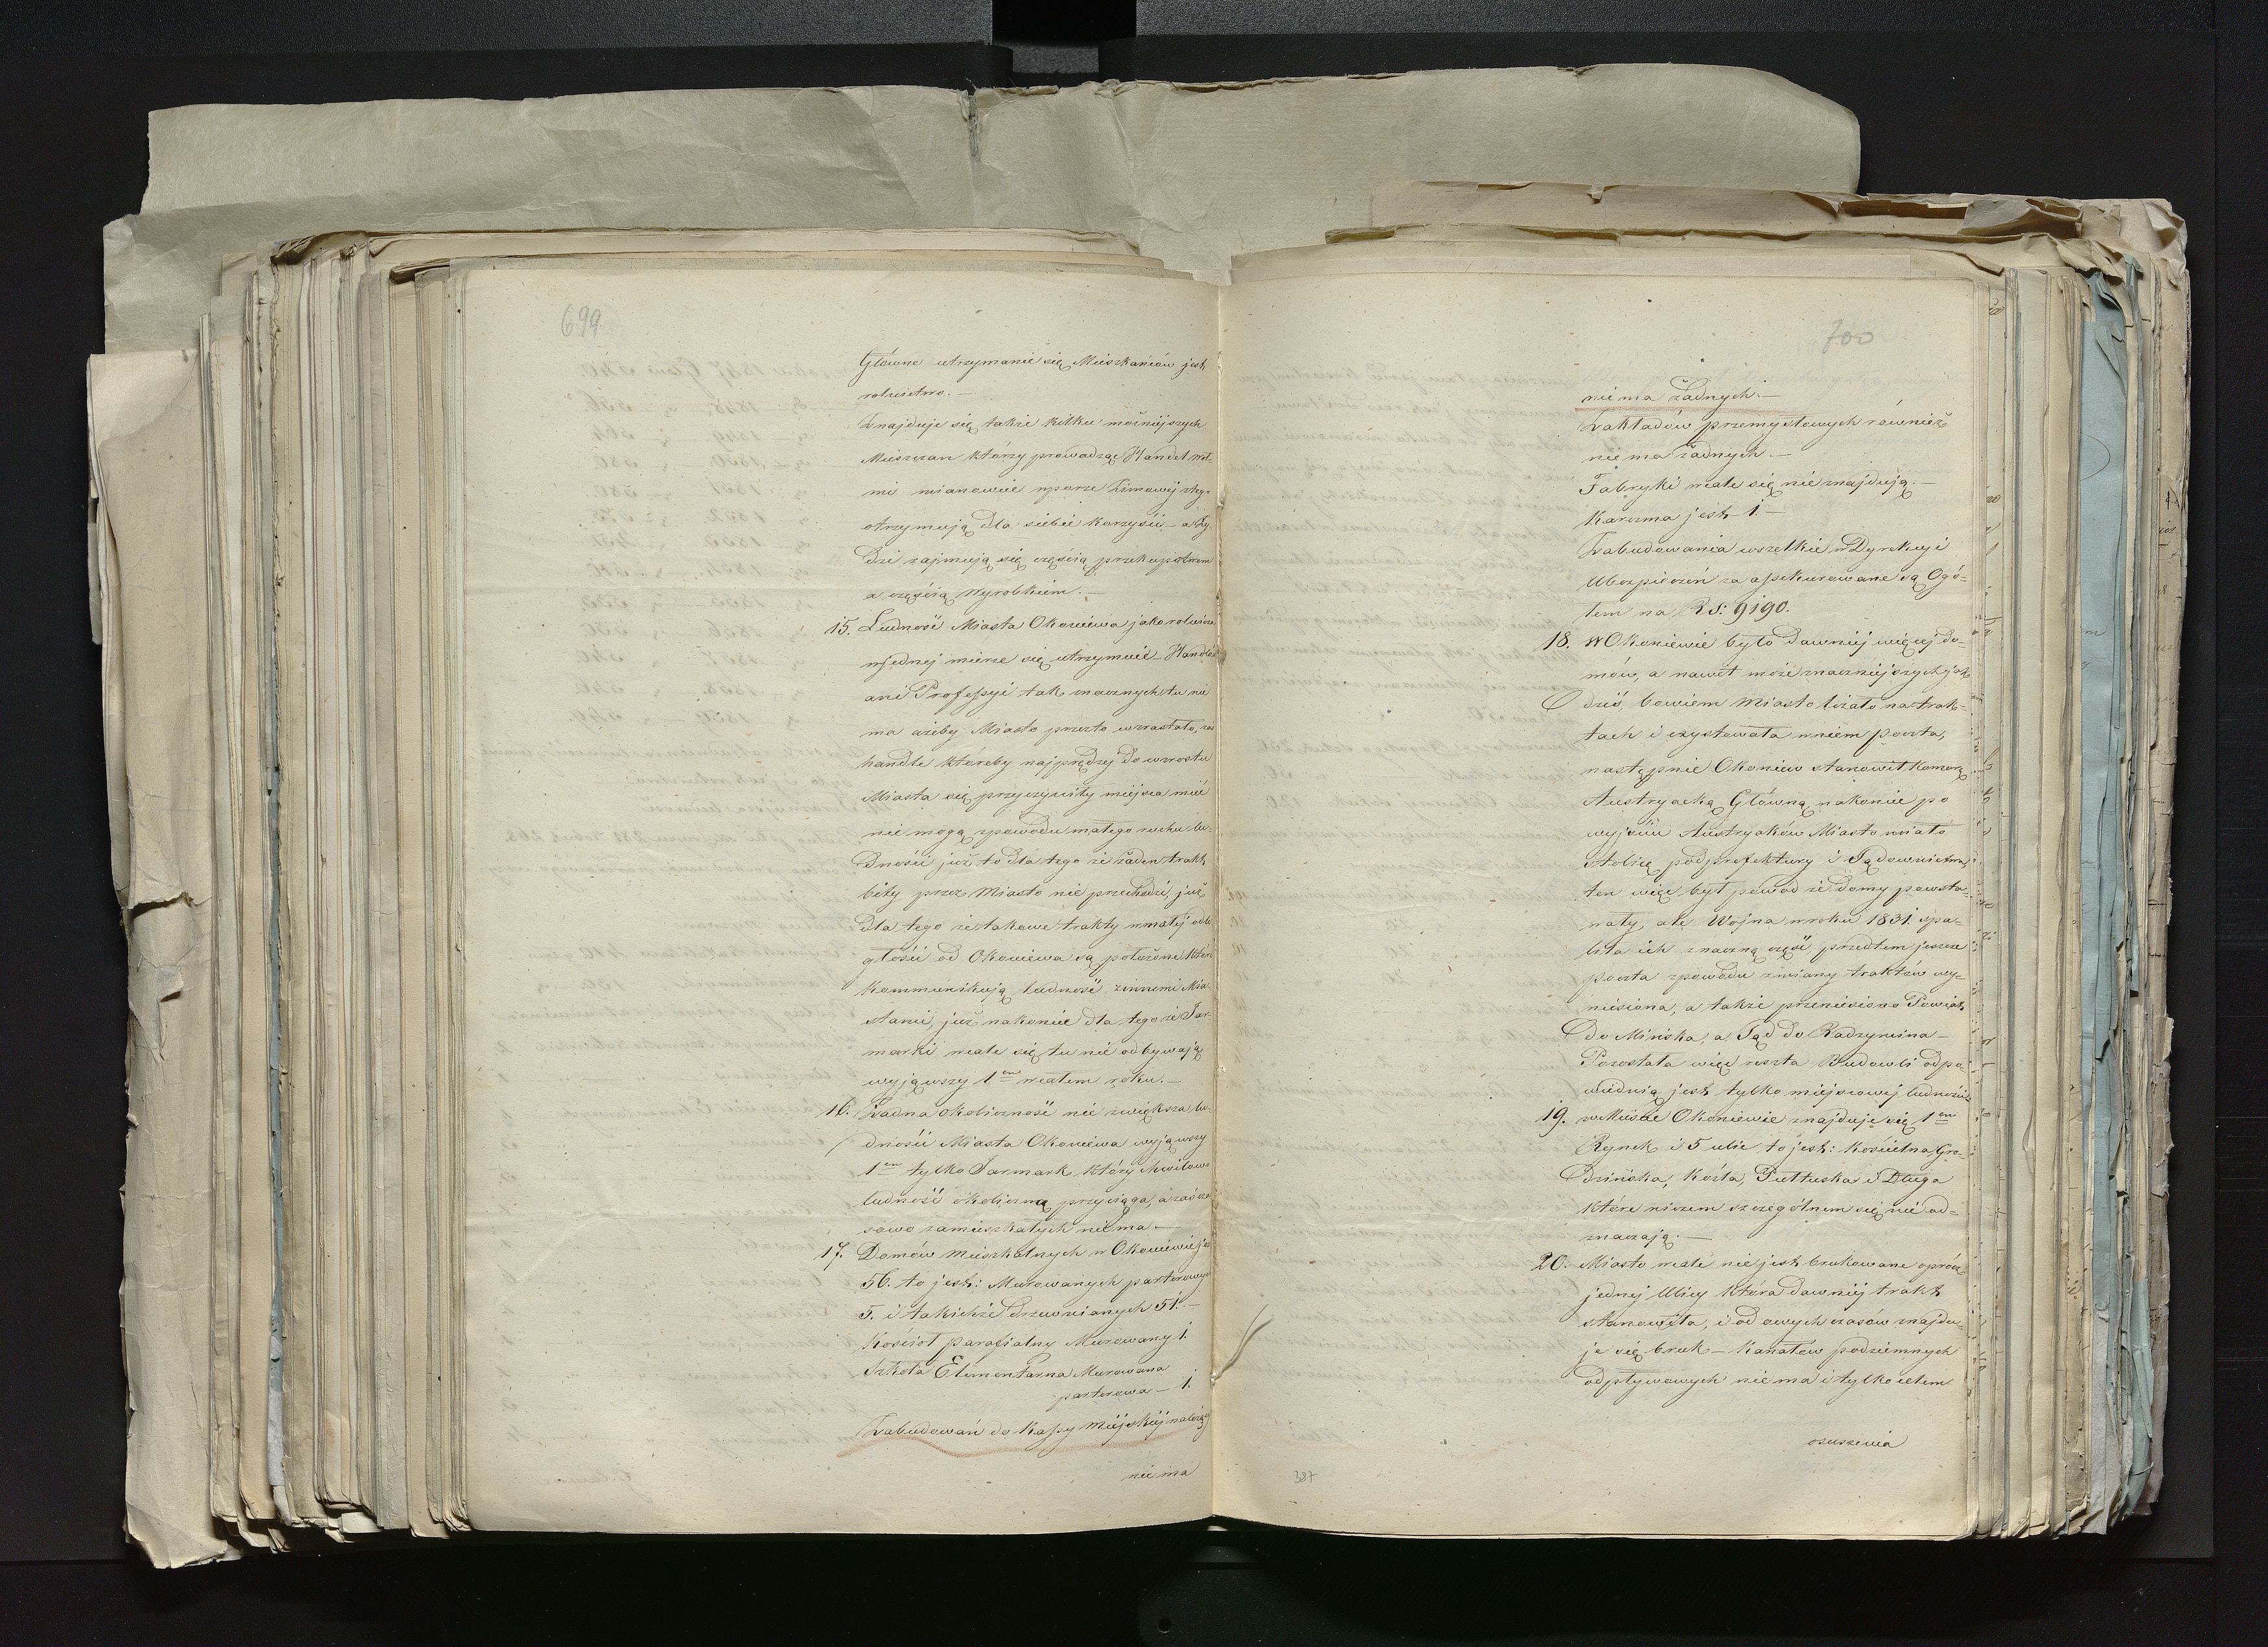 699.
Główne utrzymanie się Mieszkańców jest
rolnictwo. —
Znajduje się także kilku możniejszych
Mieszczan którzy prowadząc Handel woł-
mi mianowicie w porze Zimowéj ztąg-
otrzymują dla siebie korzyści — a Ży
dzi zajmują się częścią przekupstwem
a częścią Wyrobkiem. —
15. Ludność Miasta Okoniewa jako rolnicza
w jednej mierze się utrzymuie — Handlów
ani Professyi tak znacznych tu nie
ma ażeby Miasto przezto wzrastało, zaś
handle któreby najprędzej do wzrostu
Miasta się przyczyniły miejsca mieć
nie mogą z powodu małego ruchu lu-
dności już to dla tego że żaden trakt
bity przez Miasto nie przechodzi, już
dla tego że takowe trakty w małéj odle
głości od Okoniewa są położone które
kommunikują ludność z innemi Mia
stami, już nakoniec dla tego że Jar-
marki wcale się tu nie odbywają
wyjąwszy 1en w całem roku. —
16. Żadna okoliczność nie zwiększa lu-
dności Miasta Okoniewa wyjąwszy
1en tylko Jarmark który chwilowo
ludność okoliczną przyciąga, a zaś cza
sowo zamieszkałych nie ma —
17. Domów mieszkalnych w Okoniewie jest
56. to jest: Murowanych parterowych
5. i takichże drewnianych 51. —
Kościół parafialny Murowany 1.
Szkoła Elementarna Murowana
parterowa — 1.
Zabudowań do Kassy Miejskiéj należący
nie ma
700
nie ma żadnych. —
Zakładów przemysłowych również
nie ma żadnych. —
Fabryki wcale się nie znajdują. —
Karczma jest 1. —
Zabudowania wszelkie w Dyrekcyi
Ubezpieczeń za assekurowane są Ogó-
łem na Rs: 9190.
18. W Okoniewie było dawniéj więcej do-
mów, a nawet może znaczniejszych jak
dziś, bowiem Miasto leżało na trak-
tach i exystowała w niem poczta,
następnie Okoniew stanowił Komorę
Austryacką Główną nakoniec po
wyjściu Austryaków Miasto miało
stolicę podprefektury i Sądownictwa,
ten więc był powód że domy powsta-
wały, ale Wojna w roku 1831. spa-
liła ich znaczną część przedtem jeszcze
poczta z powodu zmiany traktów wy-
niesiona, a także przeniesiono Powiat
do Mińska, a Sąd do Radzymina —
Pozostała więc reszta Budowli odpo-
wiednią jest tylko miejscowéj ludności
19. w Mieście Okoniewie znajduje się 1en
Rynek i 5 ulic to jest: Kościelna, Gro-
dzińska, Kozła, Pułtuska i Długa
które niczem szczególnem się nie od-
znaczają. —
20. Miasto wcale nie jest brukowane oprócz
jednej Ulicy która dawniéj trakt
stanowiła, i od owych czasów znajdu-
je się bruk — Kanałów podziemnych
odpływowych nie ma i tylko celem
osuszenia
387